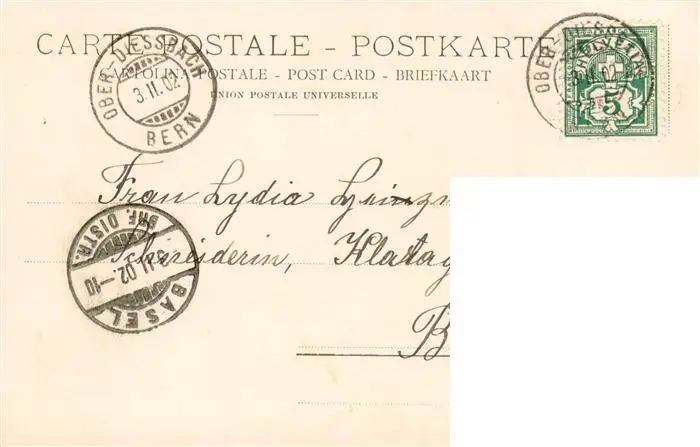 CARTE POSTALE - POSTKARTE
CARTOLINA POSTALE - POST CARD - BRIEFKAART
UNION POSTALE UNIVERSELLE
OBER-DIESSBACH
3.II.02
BERN
OBER-DIESSB
II.02
HELVETIA
5
Frau Lydia
Schneiderin,
B
BRF. DISTR.
3.II.02.-10
BASEL